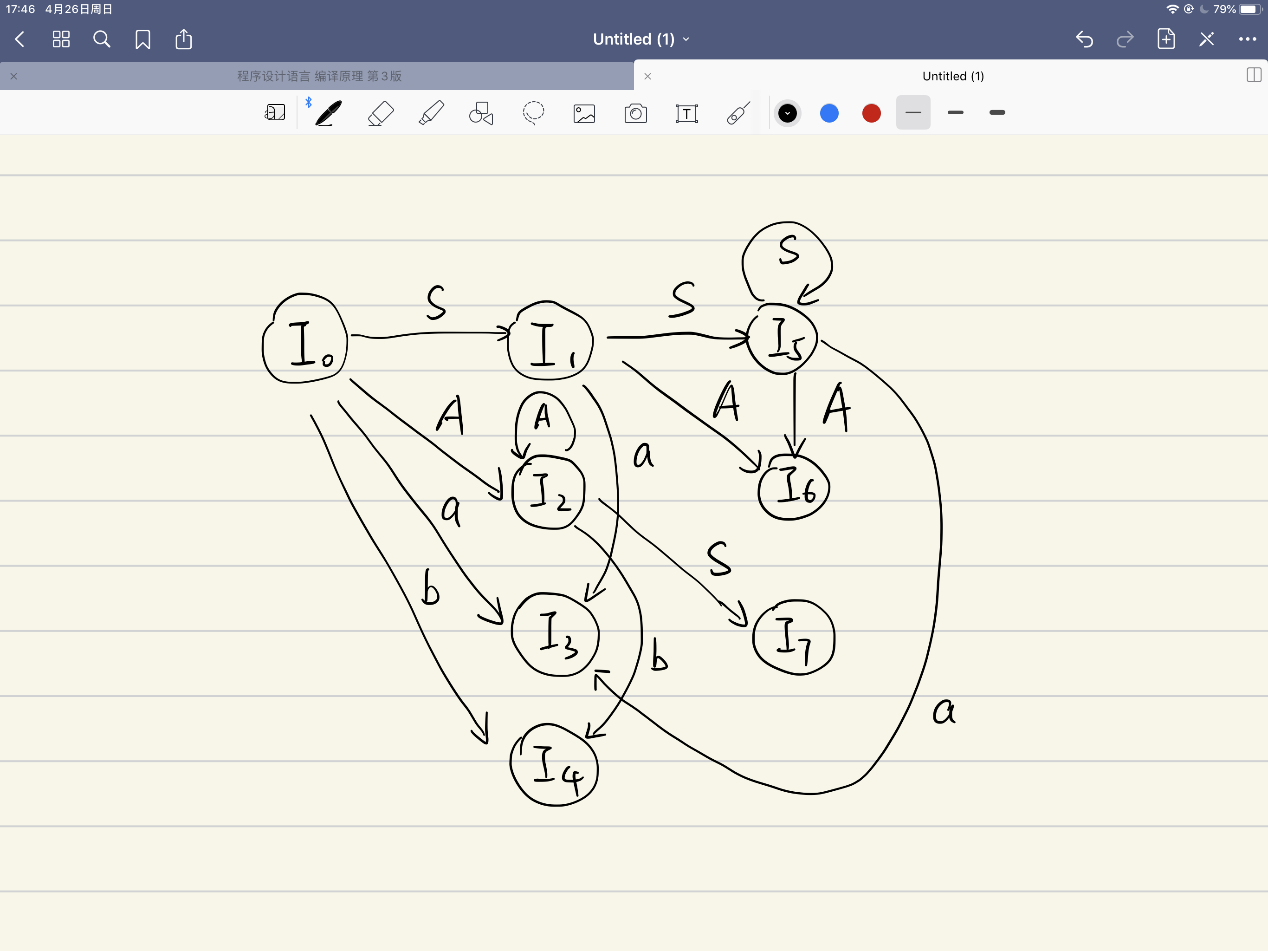 17:46 4月26日周日
79%
Untitled (1)
程序设计语言 编译原理 第3版
Untitled (1)
T
S
S
S
I0
I1
I5
A
A
A
A
a
I2
I6
a
S
b
I3
I7
b
a
I4